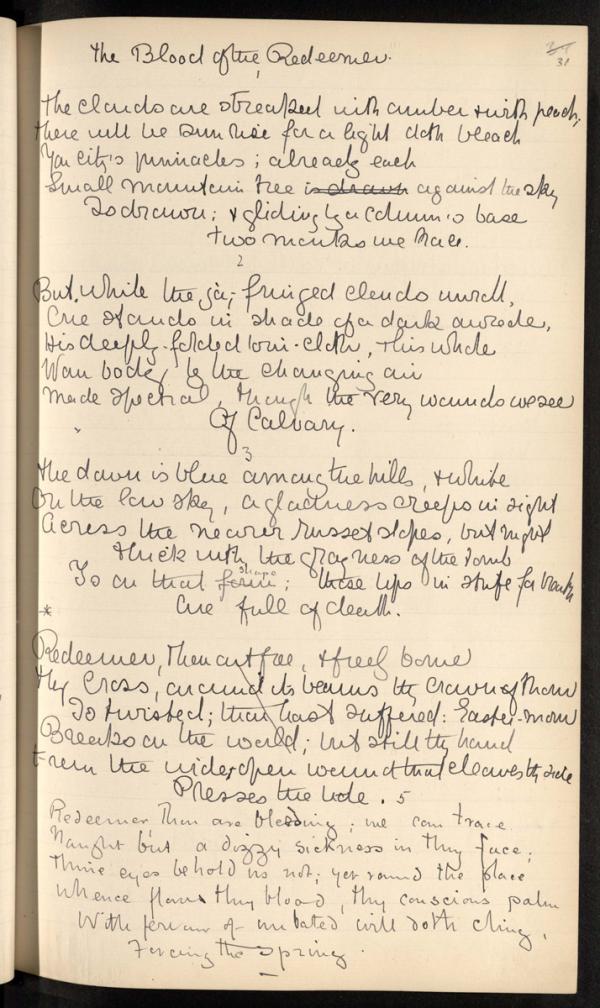 31
The Blood of the Redeemer.
1
The clouds are streaked with amber & with peach;
There will be sunrise for a light doth bleach
Yon city's pinnacles; already each
Small mountain tree is drawn against the sky
Is drawn; & gliding by a column's base
two monks we trace.
2
But, while the jag-fringed clouds unroll,
One stands in shade of a dark aureole,
His deeply-folded loin-cloth, & his whole
Wan body by the changing air
Made spectral, though the very wounds we see
Of Calvary.
3
The dawn is blue among the hills, & white
On the low sky, a gladness creeps in sight
Across the nearer russet slopes, but night
thick with the grayness of the tomb
Is on that form shape; those lips in strife for breath
Are full of death.
*
Redeemer, Thou art free, & freely borne
Thy Cross, around its beams thy Crown of Thorn
Is twisted; thou hast suffered: Easter-morn
Breaks on the world; but still thy hand
From the wide, open wound that cleaves thy side
Presses the tide.
5
Redeemer Thou are bleeding; we can trace
Naught but a dizzy sickness in thy face;
Thine eyes behold us not; yet round the place
Whence flows thy blood, thy conscious palm
With fervour of unbated will doth cling,
Forcing the spring.